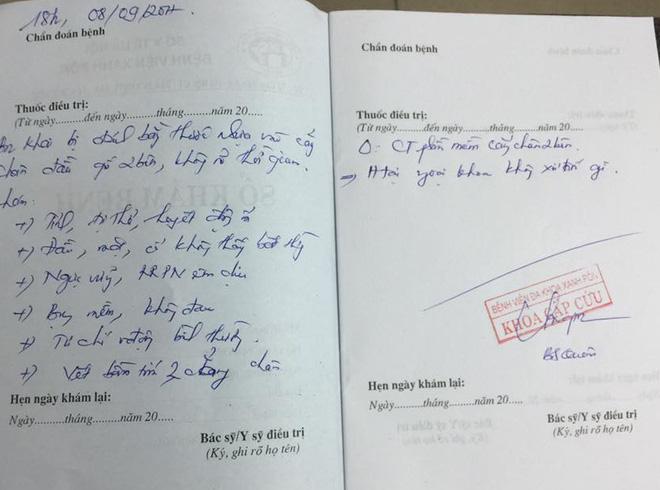 18h, 08/09/2017.
Chẩn đoán bệnh
Thuốc điều trị:
(Từ ngày.........đến ngày.........tháng.........năm 20.....
khai bị đánh bằng thước nhựa vào cẳng
chân đầu gối 2 bên, không rõ thời gian.
+) Tỉnh, tự thở, huyết động ổn
+) Đầu, mặt, cổ không thấy bất thg
+) Ngực vững, RRPN êm dịu
+) Bụng mềm, không đau
+) Tứ chi vận động bình thường.
+) Vết bầm tím 2 cẳng chân
Hẹn ngày khám lại:
Ngày.........tháng.........năm 20.....
Bác sỹ/Y sỹ điều trị
(Ký, ghi rõ họ tên)
Chẩn đoán bệnh
Thuốc điều trị:
(Từ ngày.........đến ngày.........tháng.........năm 20.....
Δ: CT phần mềm cẳng chân 2 bên.
=> Htại ngoại khoa không xử trí gì.
BỆNH VIỆN ĐA KHOA XANH PÔN
KHOA CẤP CỨU
Hẹn ngày khám lại:
Ngày.........tháng.........năm 20.....
Bác sỹ/Y sỹ điều trị
(Ký, ghi rõ họ tên)